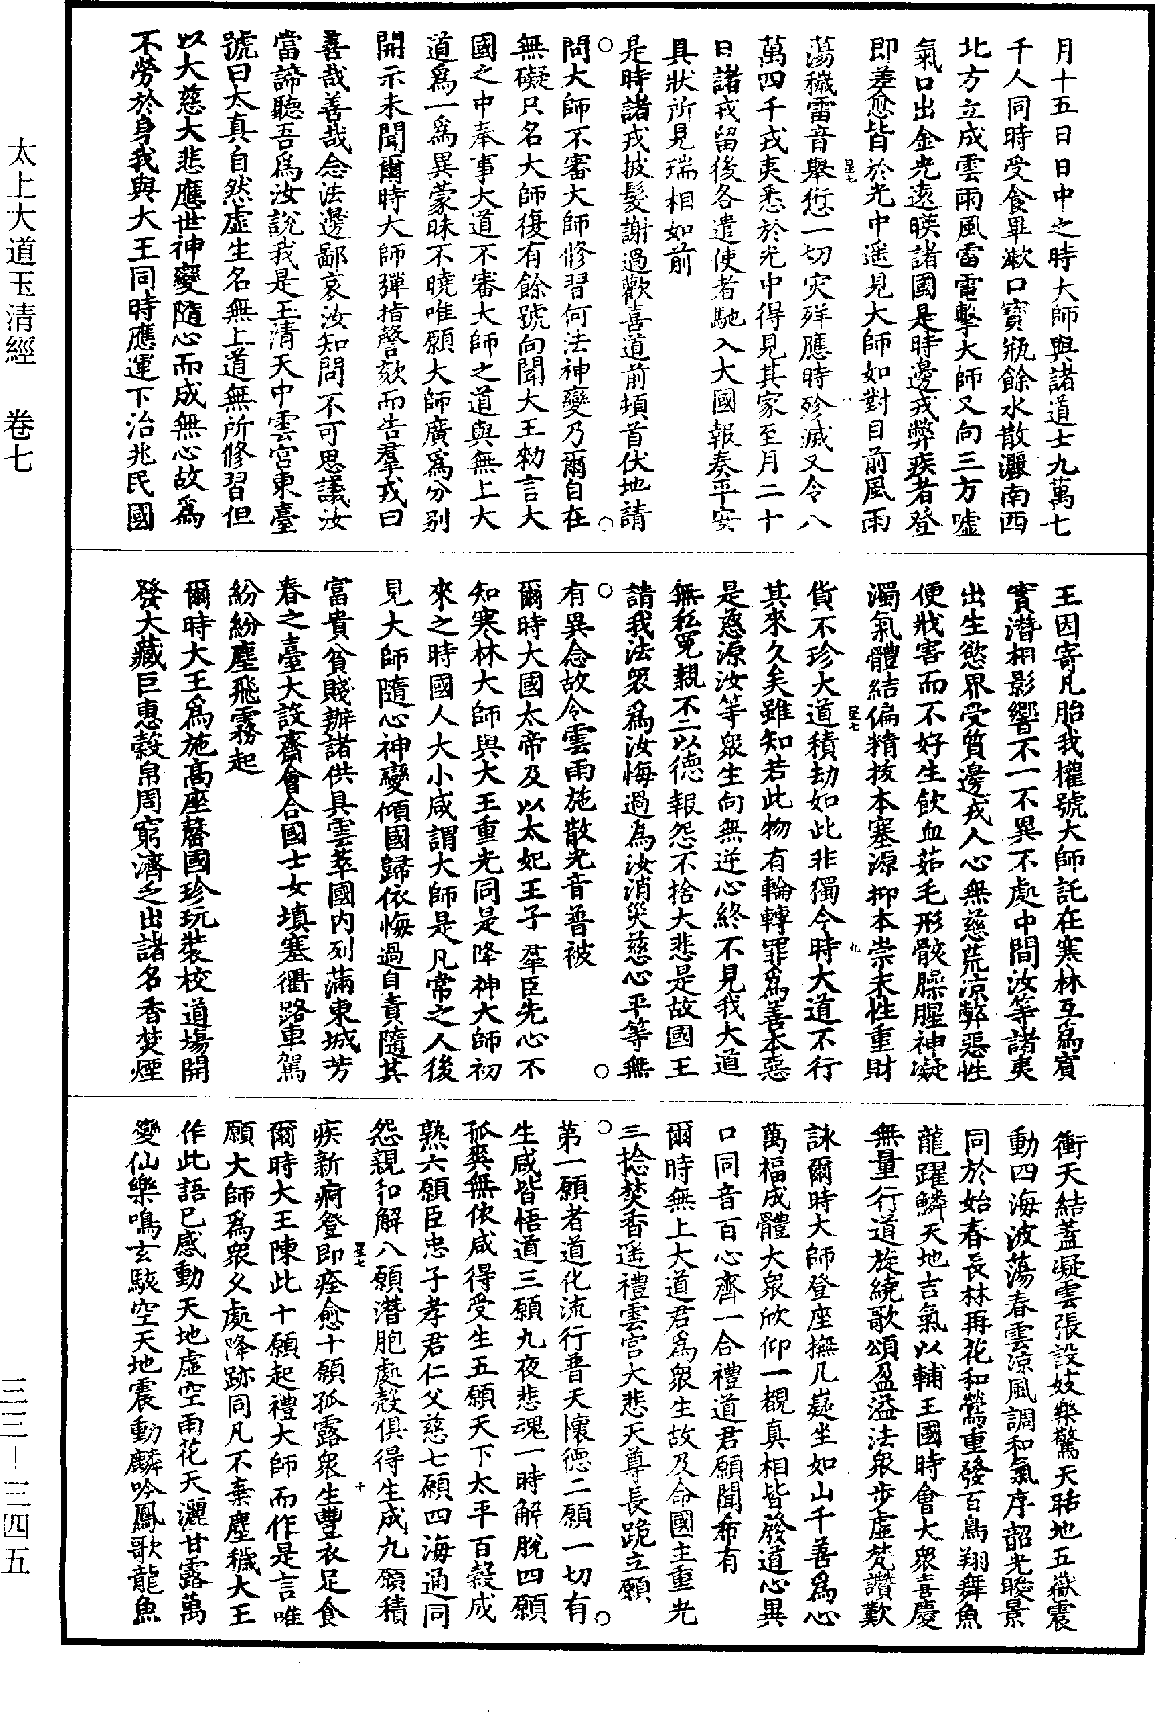 太上大道玉清經　卷七
三三－三四五
月十五日日中之時大師與諸道士九萬七
千人同時受食畢漱口寶瓶餘水散灑南西
北方立成雲雨風雷電擊大師又向三方噓
氣口出金光遠暎諸國是時邊戎弊疾者登
即差愈皆於光中遥見大師如對目前風雨
蕩穢雷音舉愆一切灾殃應時殄滅又令八
萬四千戎夷悉於光中得見其家至月二十
日諸戎留後各遣使者馳入大國報奏平安
具狀所見瑞相如前
是時諸戎披髮謝過歡喜道前頃首伏地請
問大師不審大師修習何法神變乃爾自在
無礙只名大師復有餘號向聞大王勑言大
國之中奉事大道不審大師之道與無上大
道爲一爲異蒙昧不曉唯願大師廣爲分别
開示未聞爾時大師彈指謦欬而告羣戎曰
善哉善哉念法邊鄙哀汝知問不可思議汝
當諦聽吾爲汝說我是玉清天中雲宫東臺
號曰太真自然虚生名無上道無所修習但
以大慈大悲應世神變隨心而成無心故爲
不勞於身我與大王同時應運下治兆民國
王因寄凡胎我權號大師託在寒林互爲賓
實潜相影響不一不異不處中間汝等諸夷
出生慾界受質邊戎人心無慈荒涼弊惡性
便戕害而不好生飲血茹毛形骸臊腥神凝
濁氣體結偏精拔本塞源抑本崇末性重財
貨不珍大道積劫如此非獨今時大道不行
其來久矣雖知若此物有輪轉罪爲善本惡
是慈源汝等衆生向無逆心終不見我大道
無私冤親不二以德報怨不捨大悲是故國王
請我法衆爲汝悔過爲汝消災慈心平等無
有異念故令雲雨施散光音普被
爾時大國太帝及以太妃王子羣臣先心不
知寒林大師與大王重光同是降神大師初
來之時國人大小咸謂大師是凡常之人後
見大師隨心神變傾國歸依悔過自責隨其
富貴貧賤辦諸供具雲萃國内列滿東城芳
春之臺大設齋會合國士女填塞衢路車駕
紛紛塵飛霧起
爾時大王爲施高座罄國珍玩裝校道場開
發大藏巨惠穀帛周窮濟乏出諸名香焚煙
衝天結蓋凝雲張設妓樂驚天聒地五嶽震
動四海波蕩春雲涼風調和氣序韶光睒景
同於始春長林再花和鶯重發百鳥翔舞魚
龍躍鱗天地吉氣以輔王國時會大衆喜慶
無量行道旋繞歌頌盈溢法衆步虚梵讚歎
詠爾時大師登座撫几嶷坐如山千善爲心
萬福成體大衆欣仰一覩真相皆發道心異
口同音百心齊一合禮道君願聞希有
爾時無上大道君爲衆生故及命國主重光
三捻焚香遥禮雲宫大悲天尊長跪立願
第一願者道化流行普天懷德二願一切有
生咸皆悟道三願九夜悲魂一時解脫四願
孤㷀無依咸得受生五願天下太平百穀成
熟六願臣忠子孝君仁父慈七願四海通同
怨親和解八願潜胞處㲉俱得生成九願積
疾新痾登即痊愈十願孤露衆生豐衣足食
爾時大王陳此十願起禮大師而作是言唯
願大師爲衆父處降跡同凡不棄塵穢大王
作此語已感動天地虚空雨花天灑甘露萬
變仙樂鳴玄駭空天地震動麟吟鳳歌龍魚